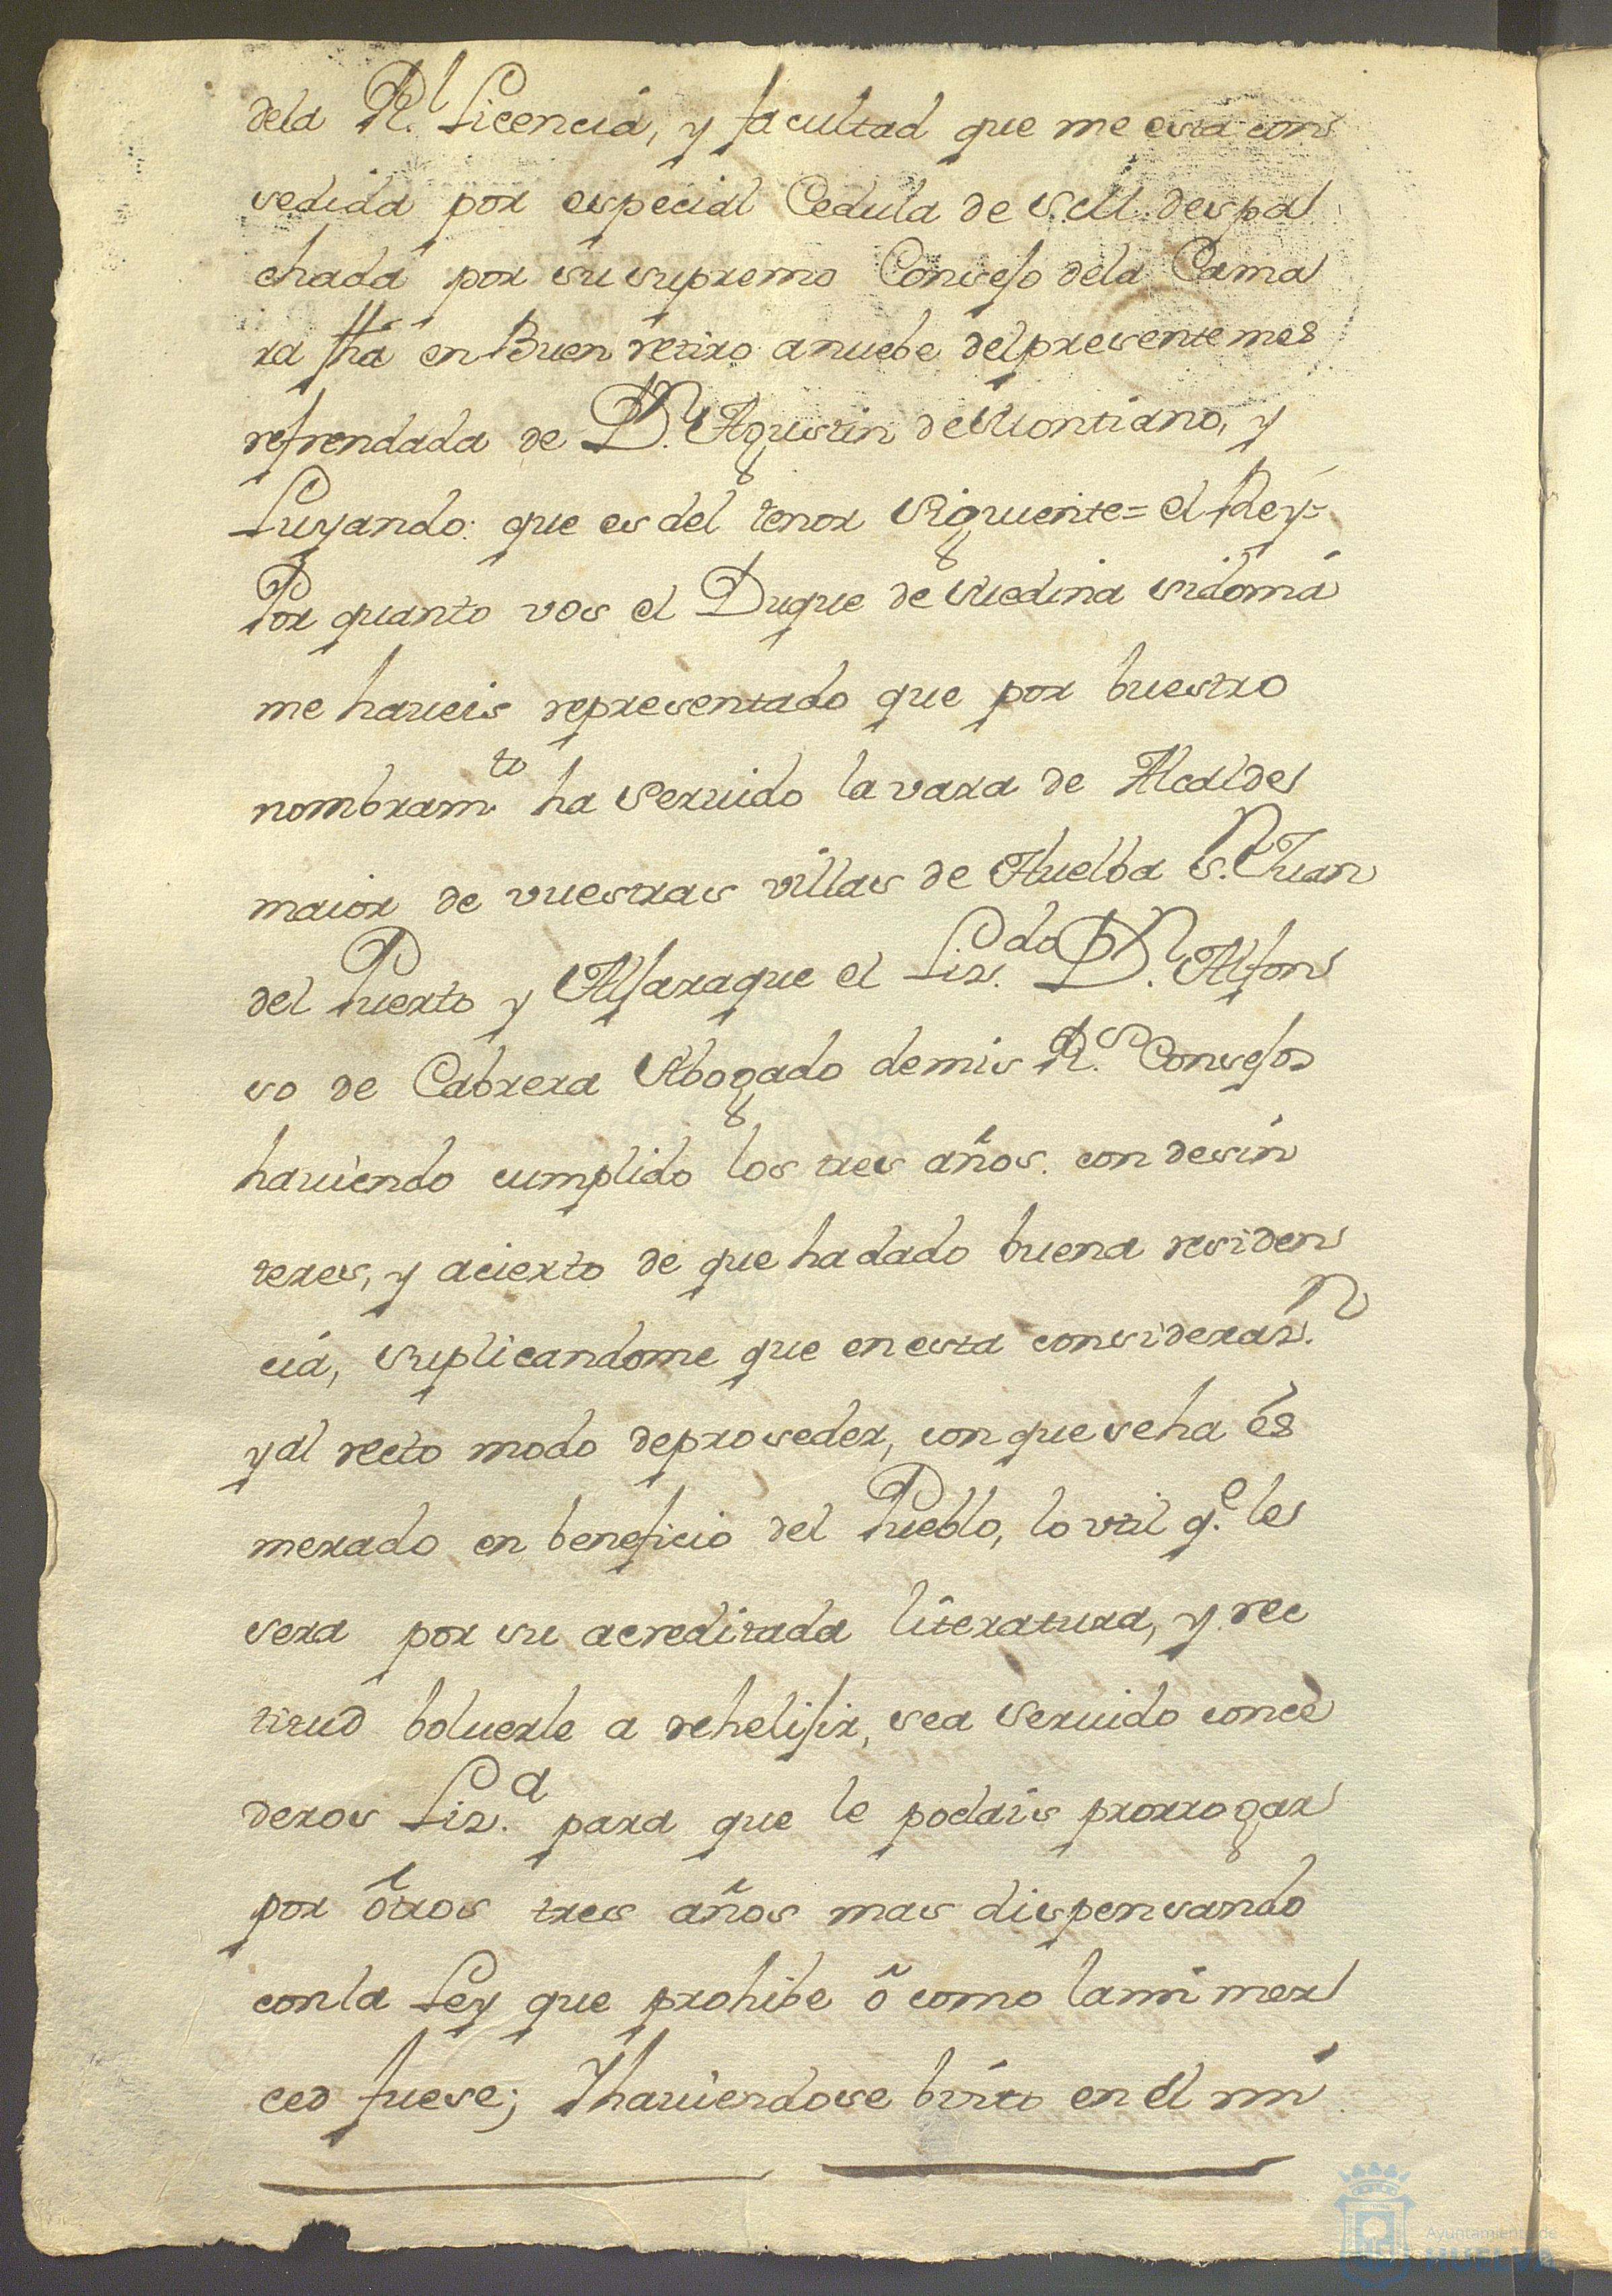 dela R.l Licencia, y facultad que me esta con
sedida por especial Cedula de S.M. despa
chada por su supremo Consejo dela Cama
ra fha en Buen retiro a nuebe del presente mes
refrendada de D.n Agustin de Montiano, y
Luyando: que es del tenor siguiente= el Rey=
Por quanto vos el Duque de Medina sidonia
me haveis representado que por buestro
nombram.to ha servido la vara de Alcalde
maior de vuestras villas de Huelba S.n Juan
del Puerto y Alfaraque el Liz.do D.n Alfon
so de Cabrera Abogado de mis R.s Consejos
haviendo cumplido los tres años con desin
teres, y acierto de que ha dado buena residen
cia, suplicandome que en esta consideraz.n
y al recto modo de proseder, con que se ha es
merado en beneficio del Pueblo, lo util q.e les
sera por su acreditada literatura, y rec
titud bolverle a rehelijir, sea servido conce
deros Liz.a para que le podais prorrogar
por ôtros tres años mas dispensando
con la Ley que prohibe ô como la mi mer
ced fuese; Y haviendose visto en el mi
Ayuntamiento de
HUELVA